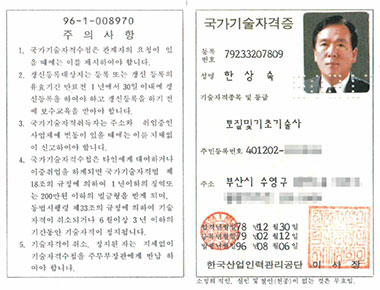 96-1-008970
주 의 사 항
1. 국가기술자격수첩은 관계자의 요청이 있
을 때에는 이를 제시하여야 합니다.
2. 갱신등록대상자는 등록 또는 갱신 등록의
유효기간 만료전 1년에서 30일 이내에 갱
신등록을 하여야 하고 갱신등록을 하기 전
에 보수교육을 받아야 합니다.
3. 국가기술자격취득자는 주소와 취업중인
사업체에 변동이 있을 때에는 이를 지체없
이 신고하여야 합니다.
4. 국가기술자격수첩은 타인에게 대여하거나
이중취업을 하게되면 국가기술자격법 제
18조의 규정에 의하여 1년이하의 징역또
는 200만원 이하의 벌금형을 받게 되며,
동법시행령 제33조의 규정에 의하여 기술
자격이 취소되거나 6월이상 3년 이하의
기간동안 기술자격이 정지됩니다.
5. 기술자격이 취소, 정지된 자는 지체없이
기술자격수첩을 주무부장관에게 반납 하
여야 합니다.
국가기술자격증
등록
번호 79233207809
성명 한 상 숙
기술자격종목 및 등급
토질및기초기술사
주민등록번호 401202-
주소 부산시 수영구
합격년월일 78년 12월 30일
79년 02월 12일
96년 08월 06일
한국산업인력관리공단 이 사 장